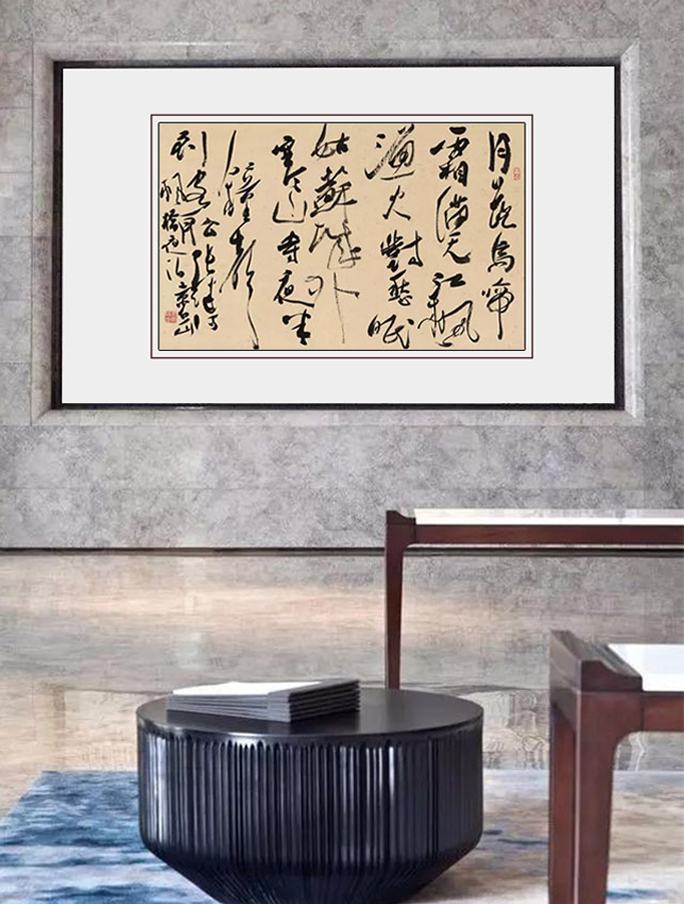 月落烏啼
霜滿天江楓
漁火對愁眠
姑蘇城外
寒山寺夜半
鐘聲
到客船
張繼
楓橋夜泊